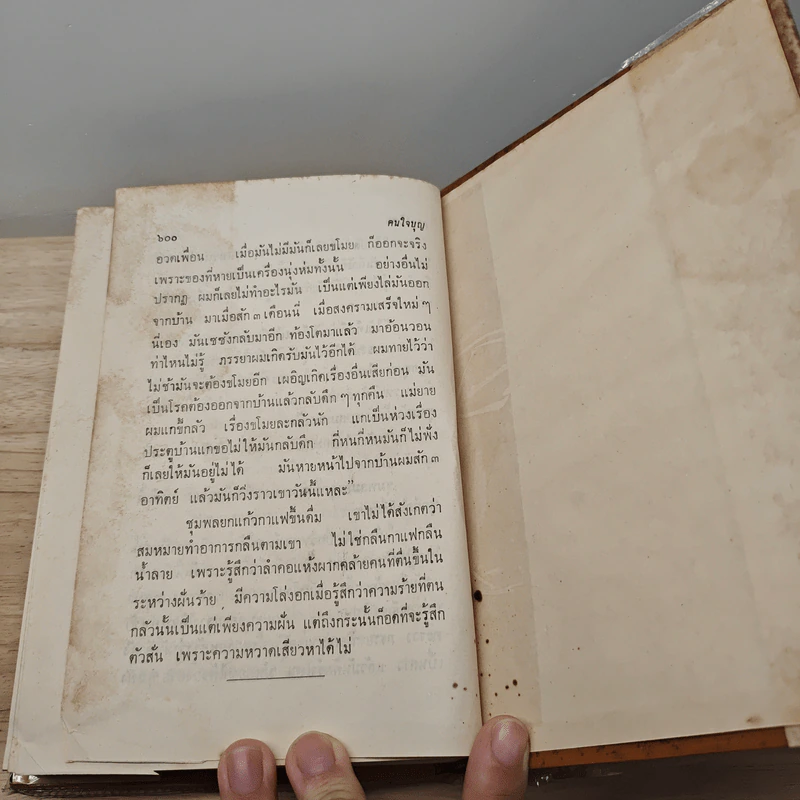 ๖๐๑
คนใจบุญ
อวดเพื่อน เมื่อมันไม่มีมันก็เลยขโมย ก็ออกจะจริง
เพราะของที่หายเป็นเครื่องนุ่งห่มทั้งนั้น อย่างอื่นไม่
ปรากฏ ผมก็เลยไม่ทำอะไรมัน เป็นแต่เพียงไล่มันออก
จากบ้าน มาเมื่อสัก ๓ เดือนนี่ เมื่อสงครามเสร็จใหม่ ๆ
นี่เอง มันเซซังกลับมาอีก ท้องโตมาแล้ว มาอ้อนวอน
ท่าไหนไม่รู้ ภรรยาผมเกิดรับมันไว้อีกได้ ผมทายไว้ว่า
ไม่ช้ามันจะต้องขโมยอีก เผอิญเกิดเรื่องอื่นเสียก่อน มัน
เป็นโรคต้องออกจากบ้านแล้วกลับดึก ๆ ทุกคืน แม่ยาย
ผมแกขี้กลัว เรื่องขโมยละกลัวนัก แกเป็นห่วงเรื่อง
ประตูบ้านแกขอไม่ให้มันกลับดึก กี่หนกี่หนมันก็ไม่ฟัง
ก็เลยให้มันอยู่ไม่ได้ มันหายหน้าไปจากบ้านผมสัก ๓
อาทิตย์ แล้วมันก็วิ่งราวเขาวันนี้แหละ”
ชุมพลยกแก้วกาแฟขึ้นดื่ม เขาไม่ได้สังเกตว่า
สมหมายทำอาการกลืนตามเขา ไม่ใช่กลืนกาแฟกลืน
น้ำลาย เพราะรู้สึกว่าลำคอแห้งผากคล้ายคนที่ตื่นขึ้นใน
ระหว่างฝันร้าย มีความโล่งอกเมื่อรู้สึกว่าความร้ายที่ตน
กลัวนั้นเป็นแต่เพียงความฝัน แต่ถึงกระนั้นก็อดที่จะรู้สึก
ตัวสั่น เพราะความหวาดเสียวหาได้ไม่